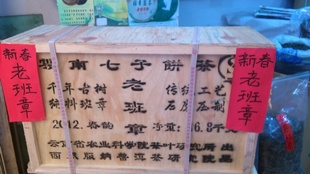 雲南七子餅茶
千年古树
纯料班章
老班章
传统工艺
石磨压制
2012.
净重:
6.8
云南省农业科学院茶叶研究所
西双版纳
普洱茶研究院
出品
新春
老班章
新春
老班章